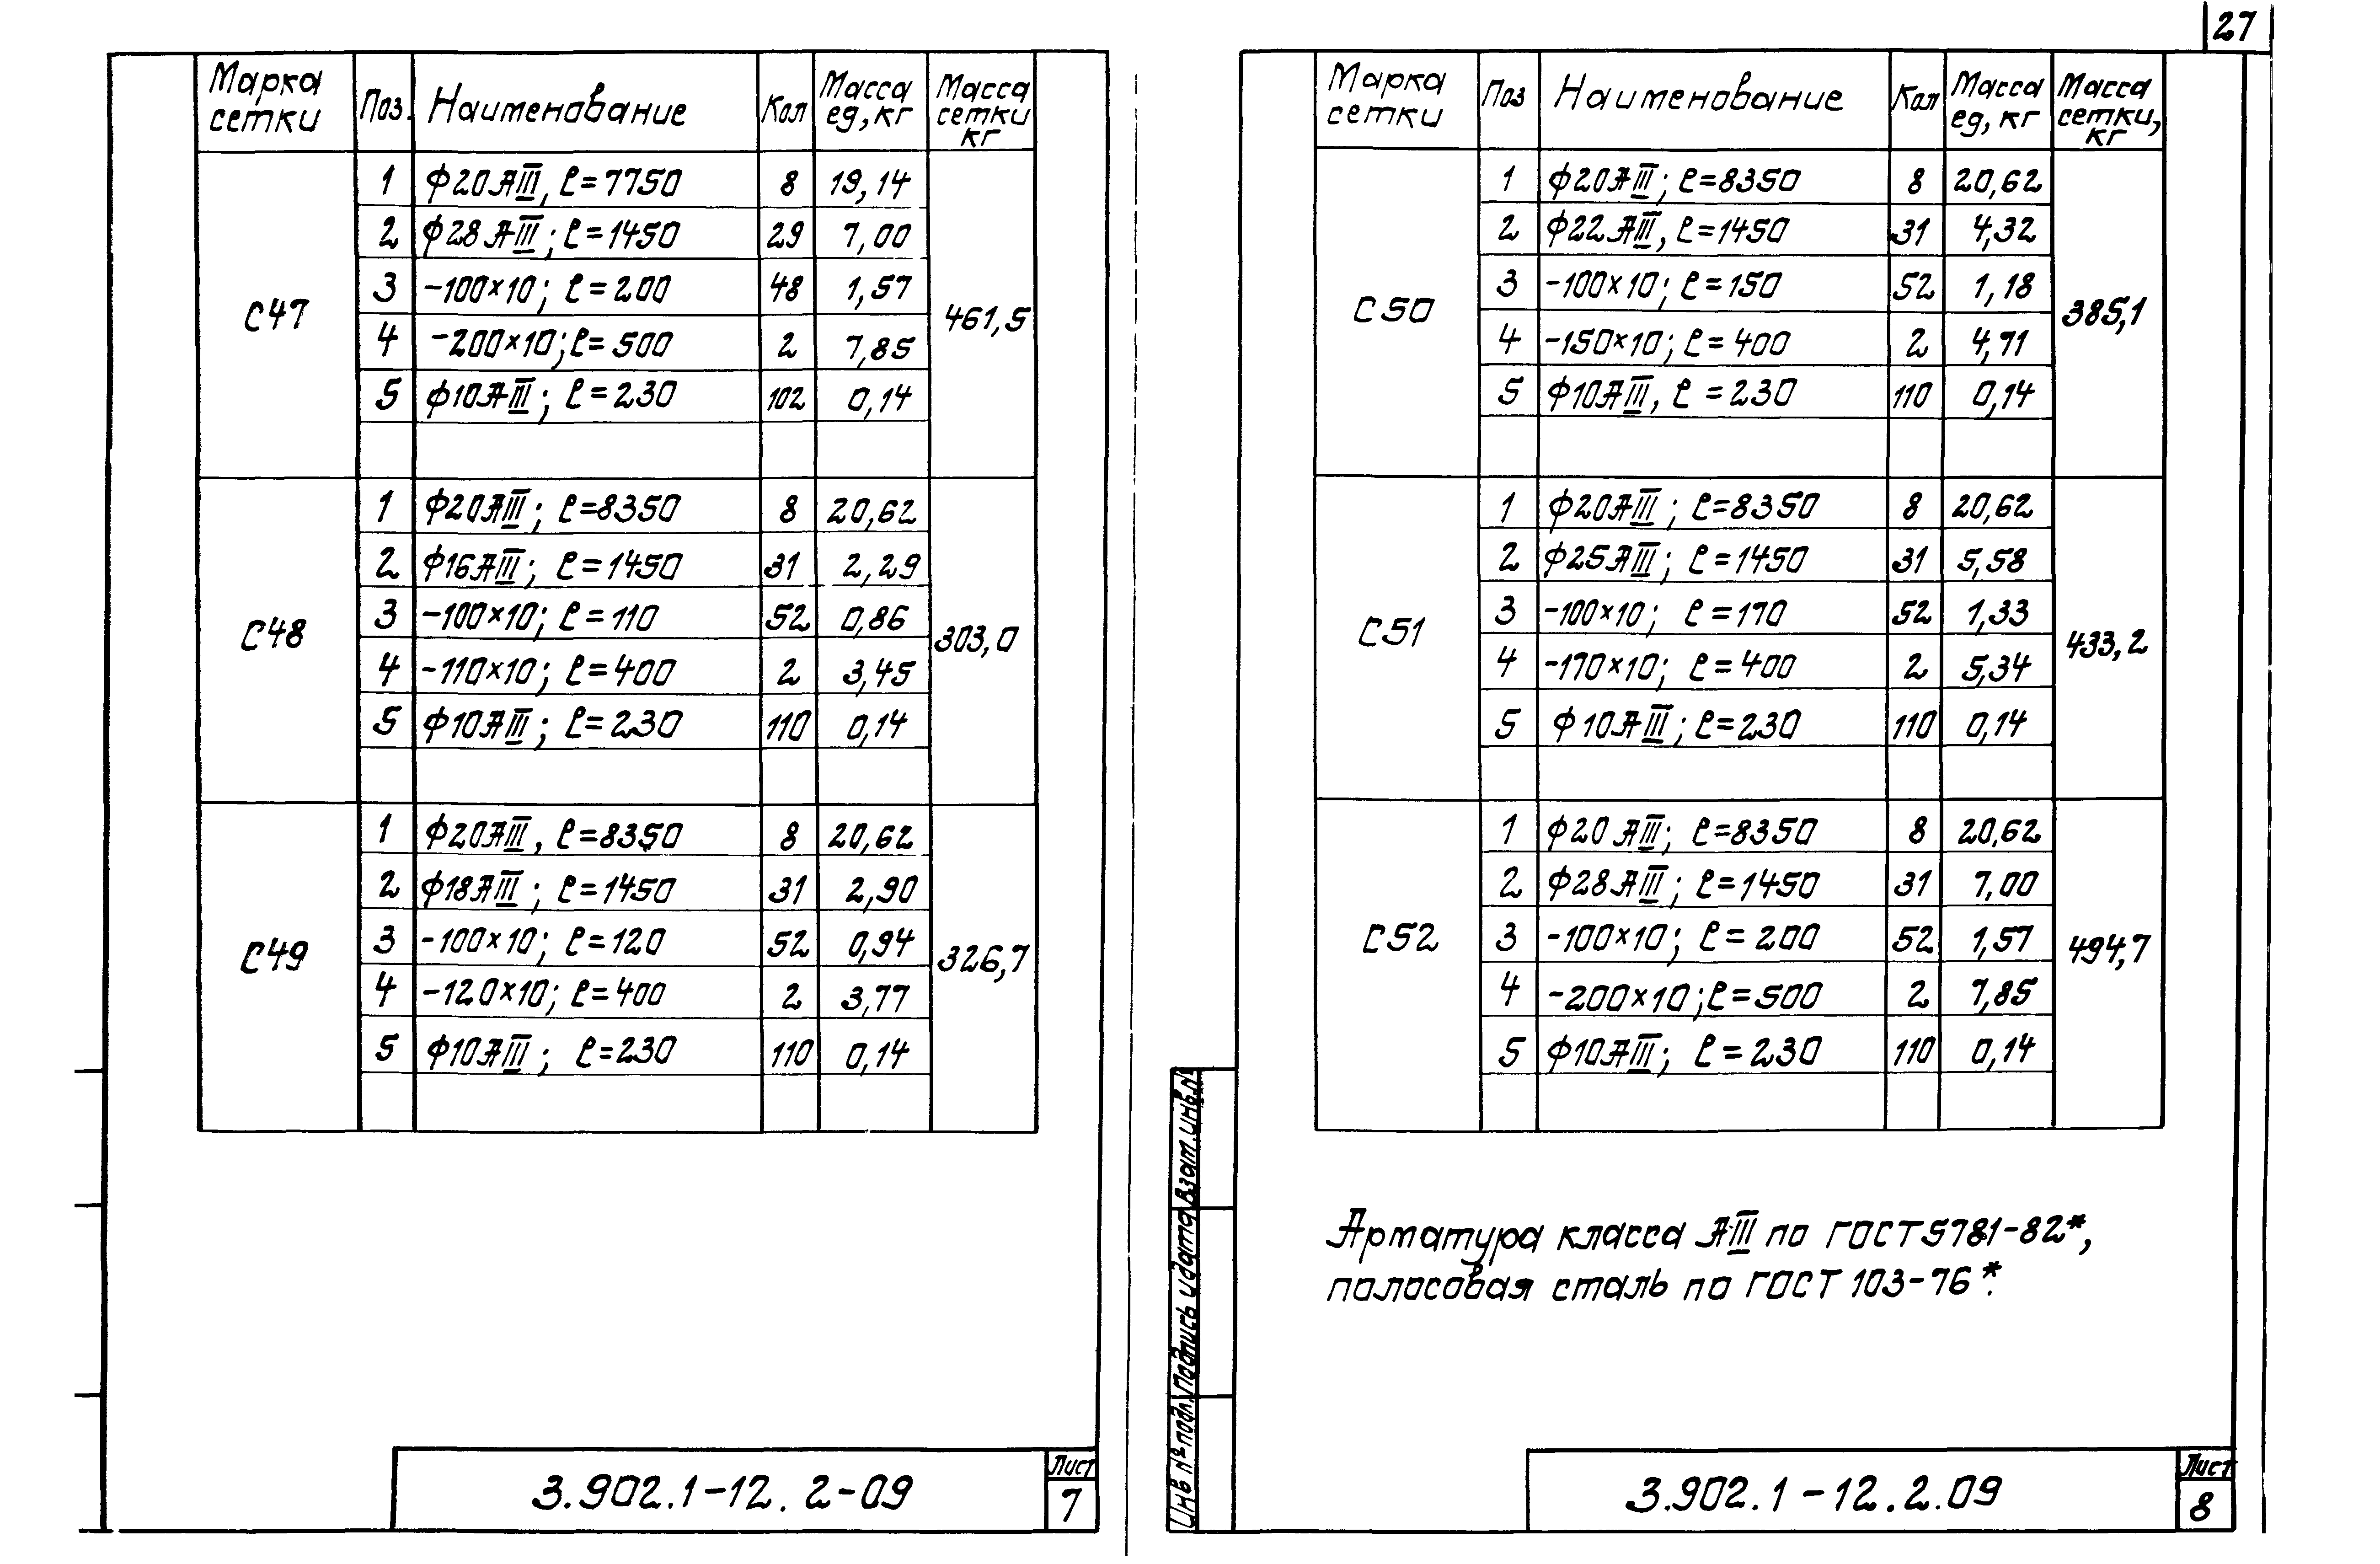 27
Марка сетки Поз. Наименование Кол Масса ед, кг Масса сетки кг
С47 461,5
1 ф20АIII, ℓ=7750 8 19,14
2 ф28АIII; ℓ=1450 29 7,00
3 -100×10; ℓ=200 48 1,57
4 -200×10; ℓ=500 2 7,85
5 ф10АIII; ℓ=230 102 0,14
С48 303,0
1 ф20АIII; ℓ=8350 8 20,62
2 ф16АIII; ℓ=1450 31 2,29
3 -100×10; ℓ=110 52 0,86
4 -110×10; ℓ=400 2 3,45
5 ф10АIII; ℓ=230 110 0,14
С49 326,7
1 ф20АIII, ℓ=8350 8 20,62
2 ф18АIII; ℓ=1450 31 2,90
3 -100×10; ℓ=120 52 0,94
4 -120×10; ℓ=400 2 3,77
5 ф10АIII; ℓ=230 110 0,14
3.902.1-12. 2-09
Лист
7
Марка сетки Поз Наименование Кол Масса ед, кг Масса сетки, кг
С50 385,1
1 ф20АIII; ℓ=8350 8 20,62
2 ф22АIII, ℓ=1450 31 4,32
3 -100×10; ℓ=150 52 1,18
4 -150×10; ℓ=400 2 4,71
5 ф10АIII, ℓ=230 110 0,14
С51 433,2
1 ф20АIII; ℓ=8350 8 20,62
2 ф25АIII; ℓ=1450 31 5,58
3 -100×10; ℓ=170 52 1,33
4 -170×10; ℓ=400 2 5,34
5 ф10АIII; ℓ=230 110 0,14
С52 494,7
1 ф20АIII; ℓ=8350 8 20,62
2 ф28АIII; ℓ=1450 31 7,00
3 -100×10; ℓ=200 52 1,57
4 -200×10; ℓ=500 2 7,85
5 ф10АIII; ℓ=230 110 0,14
Арматура класса АIII по ГОСТ5781-82*,
полосовая сталь по ГОСТ 103-76*.
Инв №подл. Подпись и дата Взам.инв.№
3.902.1-12.2.09
Лист
8